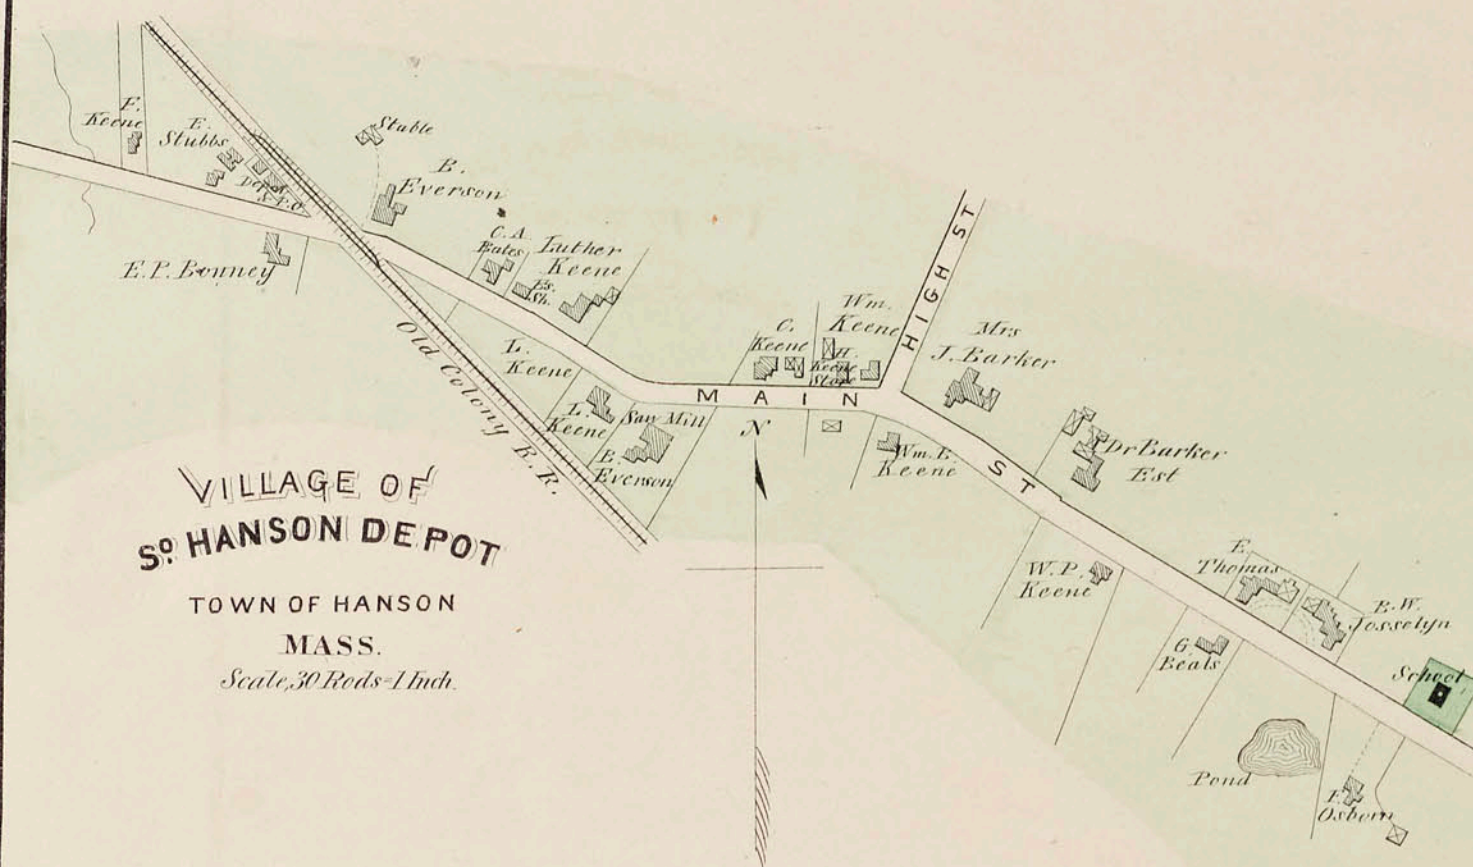 F.
Keene
E.
Stubbs
Depot
& P.O.
Stable
B.
Everson
E. P. Bonney
C. A.
Bates
Luther
Keene
Bs.
Sh.
Old Colony R. R.
L.
Keene
L.
Keene
Saw Mill
E.
Everson
C.
Keene
Wm.
Keene
H.
Keene
Store
HIGH ST
Mrs
J. Barker
MAIN ST
N
Wm. E.
Keene
Dr Barker
Est
W. P.
Keene
E.
Thomas
B. W.
Josselyn
G.
Beals
School
Pond
F.
Osborn
VILLAGE OF
So. HANSON DEPOT
TOWN OF HANSON
MASS.
Scale, 30 Rods = 1 Inch.